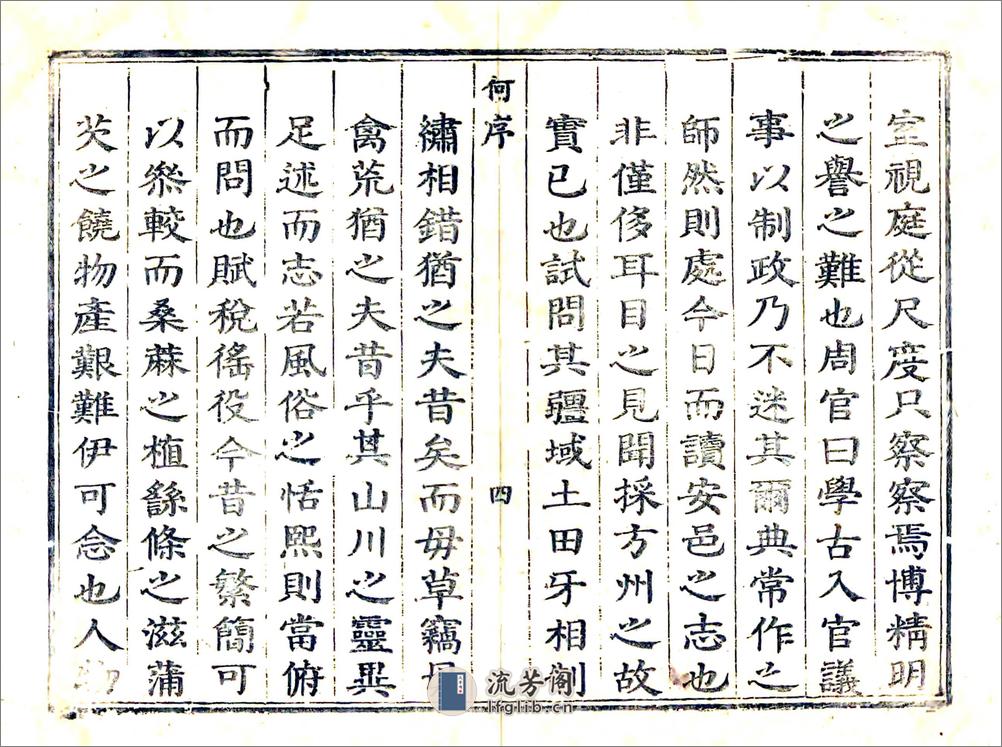 室視庭從尺度只察察焉博精明
之譽之難也周官曰學古入官議
事以制政乃不迷其爾典常作之
師然則處今日而讀安邑之志也
非僅侈耳目之見聞採方州之故
實已也試問其疆域土田牙相劀
何序
四
繡相錯猶之夫昔矣而毋草竊
禽荒猶之夫昔乎其山川之靈異
足述而志若風俗之恬熙則當俯
而問也賦稅徭役今昔之繁簡可
以槩較而桑蔴之植繇條之滋蒲
芡之饒物產艱難伊可念也人物
流芳阁
lfglib.cn